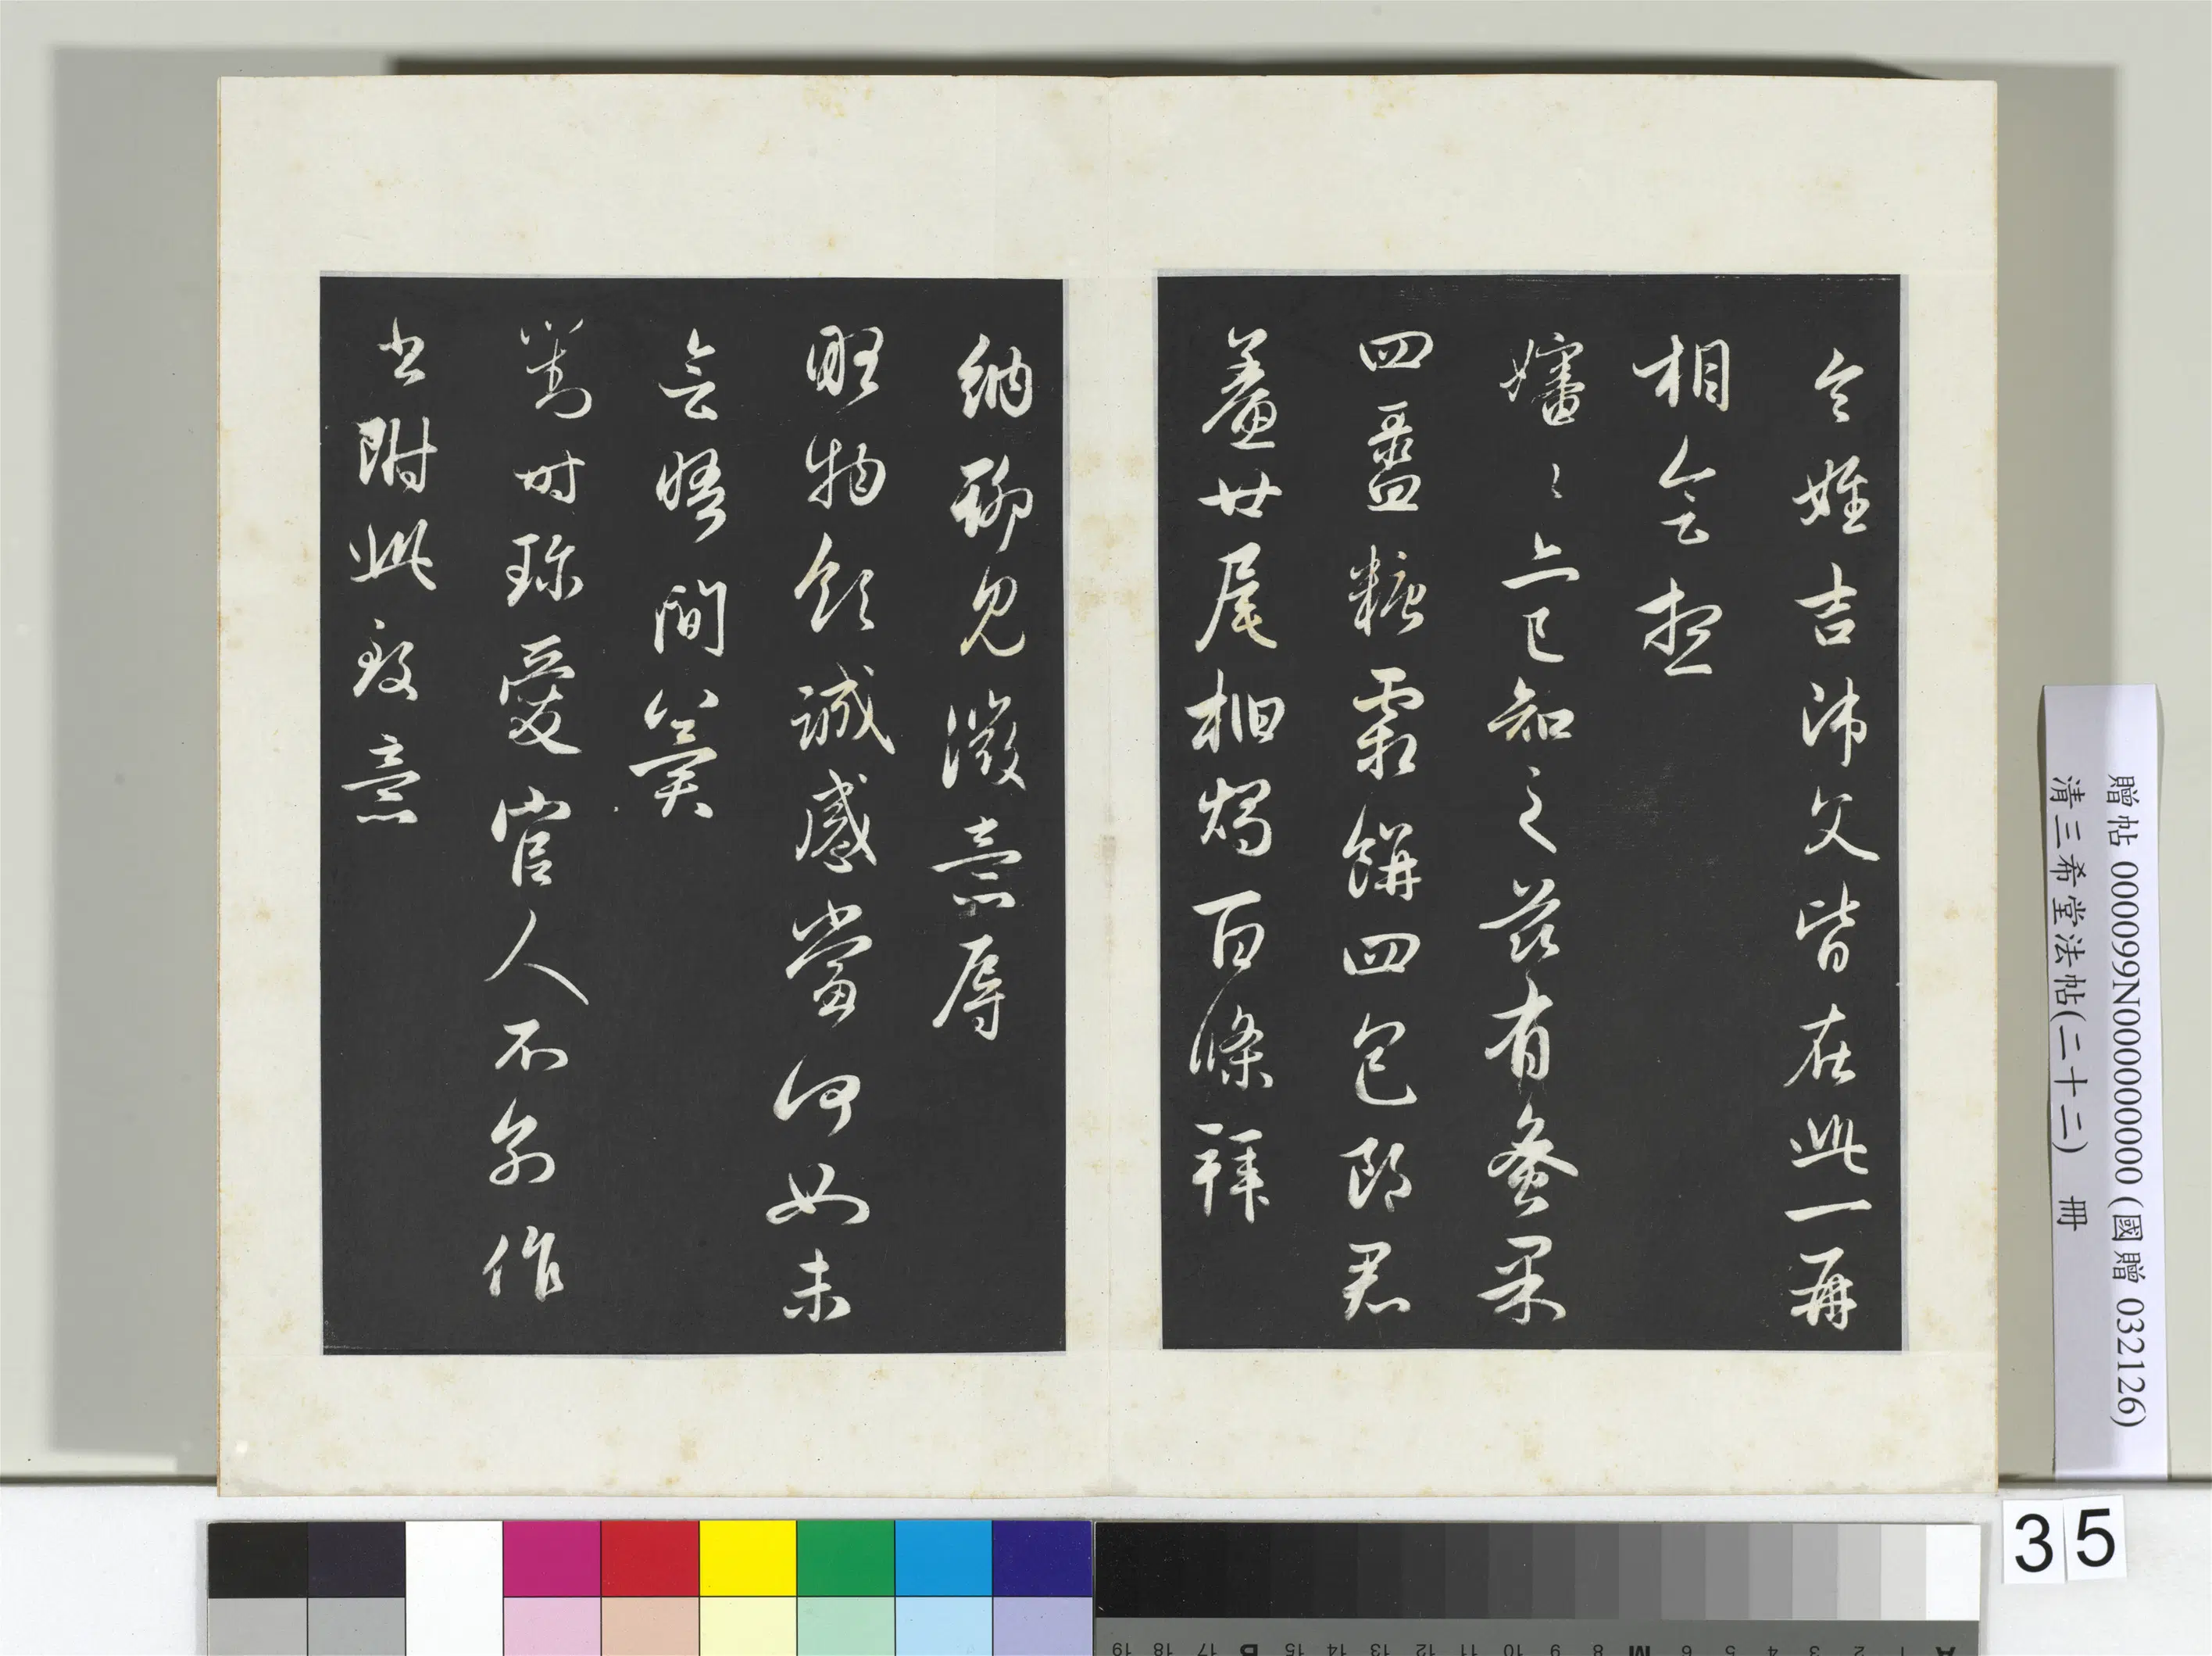 令姪吉沛父皆在此一再
相會想
嬸嬸亦已知之茲有蚕果
四盝糖霜餅四包郎君
鯗廿尾桕燭百條拜
納聊見微意辱
貺物領誠感當何如未
會晤間冀
對時珍愛官人不別作
書附此致意
贈帖 000099N000000000 (國贈 032126)
清三希堂法帖(二十二) 冊
35
A 1 2 3 4 5 6 M 8 9 10 11 12 13 14 15 B 17 18 19